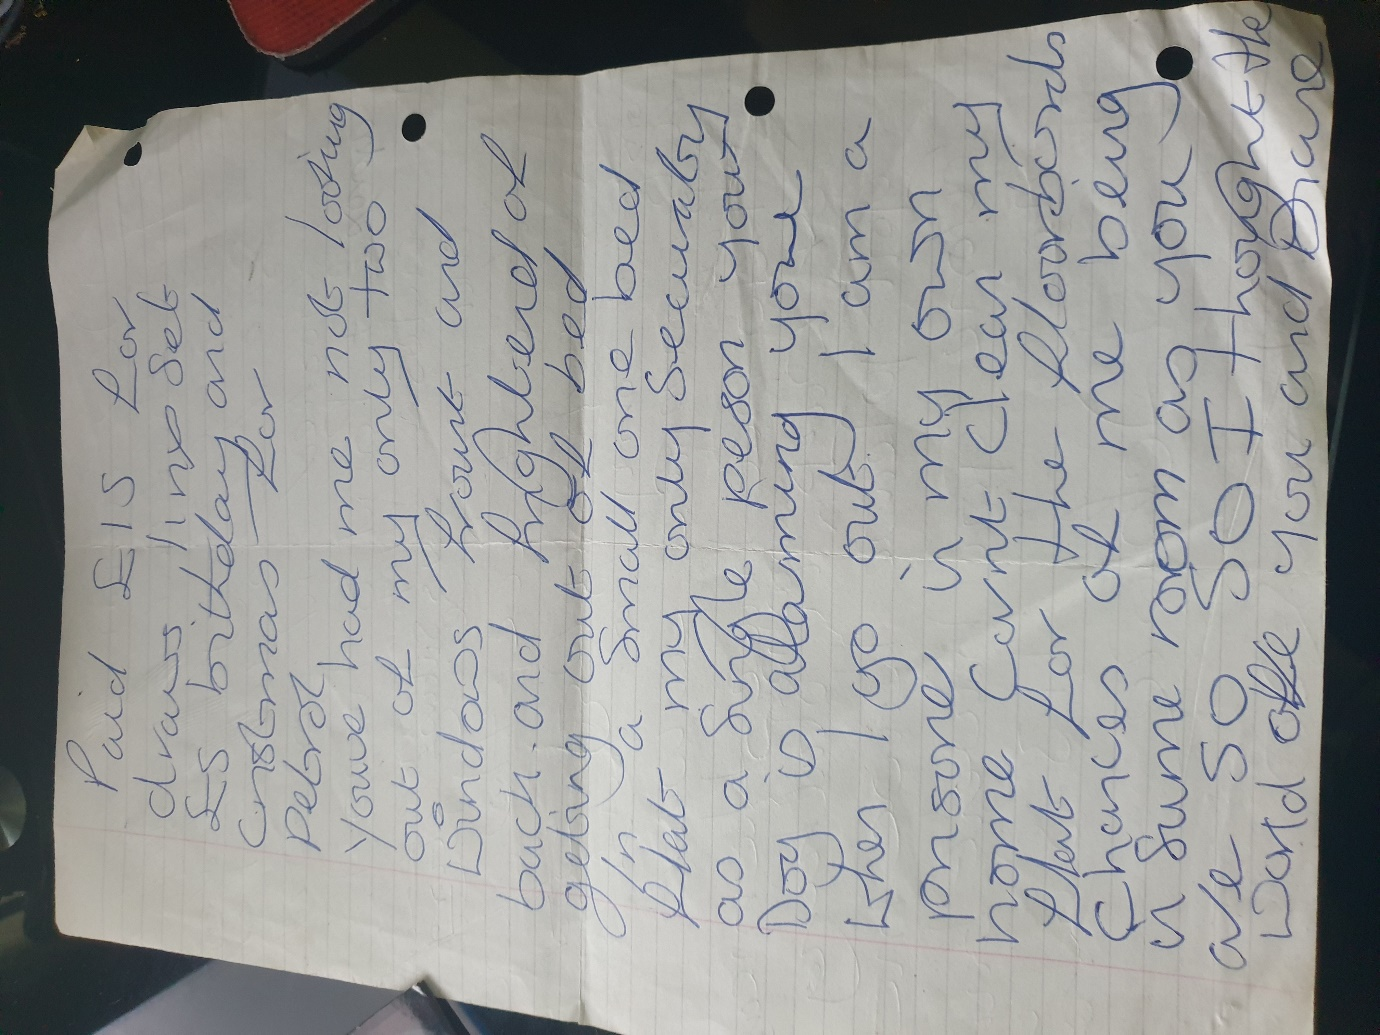 Paid £15 for
draws linx set
£5 brithday and
Cristmas for
Petrol
Youve had me not looking
out of my only two
Windows front and
back and frightend of
geting out of bed
In a small one bed
flat my only Security
as a single person your
Dog is allarming youe
When I go out I am a
prisone in my own
home Cant Clean my
flat for the floorbords
Chances of me being
in same room as you
are SO SO SO I thought the
World offe you and Diane